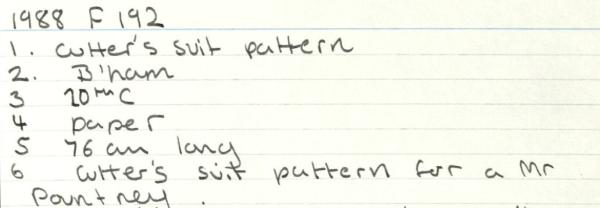 1988 F 192
1. cutter's suit pattern
2. B'ham
3 20thC
4 paper
5 76 cm long
6 cutter's suit pattern for a Mr
Pountney.